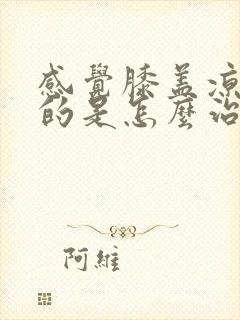 感覺膝蓋涼
的是怎麼治
阿維